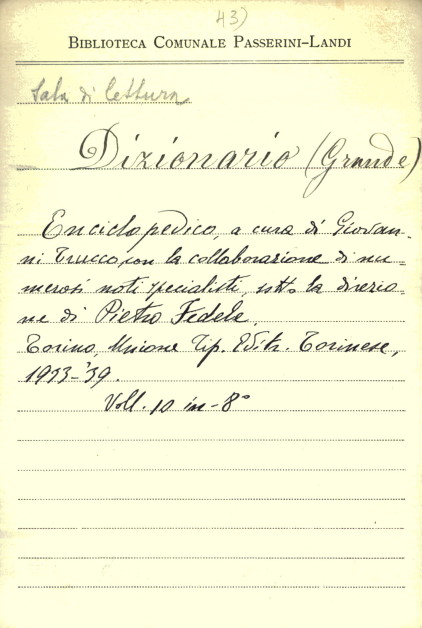 43)
BIBLIOTECA COMUNALE PASSERINI-LANDI
Sala di lettura
Dizionario (Grande)
Enciclopedico, a cura di Giovan-
ni Trucco, con la collaborazione di nu-
merosi noti specialisti, sotto la direzio-
ne di Pietro Fedele.
Torino, Unione Tip. Editr. Torinese,
1933-'39.
Voll. 10 in-8°